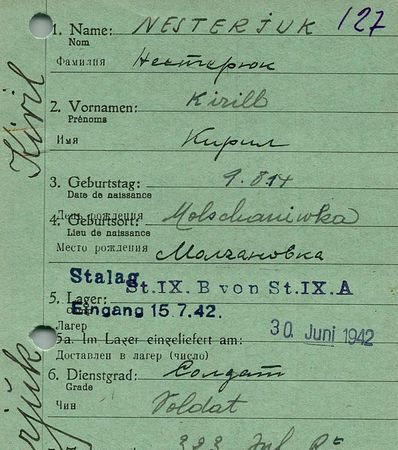 127
1. Name: NESTERJUK
Nom
Фамилия Нестерюк
2. Vornamen: Kirill
Prénoms
Имя Кирил
3. Geburtstag: 9.8.14
Date de naissance
День рождения
4. Geburtsort: Molschaniwka
Lieu de naissance
Место рождения Молчановка
Stalag
St.IX.B von St.IX.A
5. Lager:
Eingang 15.7.42.
Лагер
30. Juni 1942
5a. Im Lager eingeliefert am:
Доставлен в лагер (число)
6. Dienstgrad: Солдат
Grade
Чин Soldat
323 Inf. Rt
Kiril